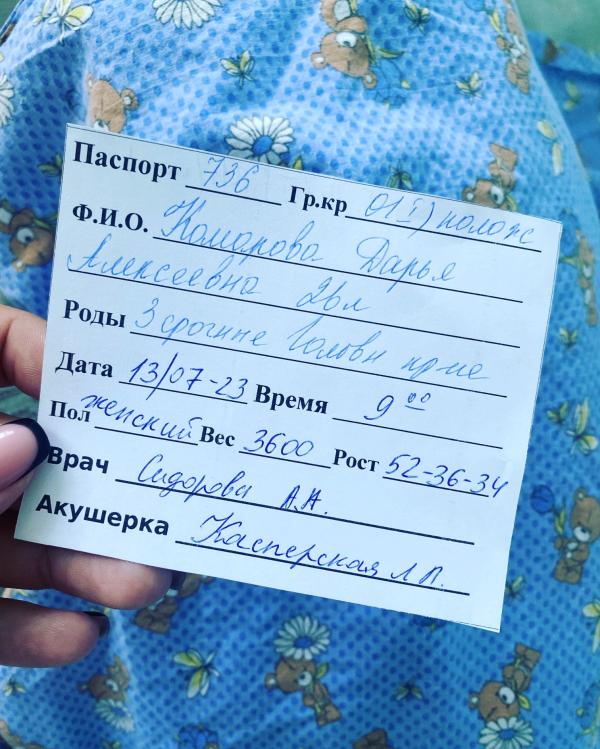 Паспорт 736 Гр.кр 0(I) полож
Ф.И.О. Комарова Дарья
Алексеевна 26л
Роды 3 срочные головн пр-ие
Дата 13/07-23 Время 9 00
Пол женский Вес 3600 Рост 52-36-34
Врач Сидорова А.А.
Акушерка Касперская Л П.